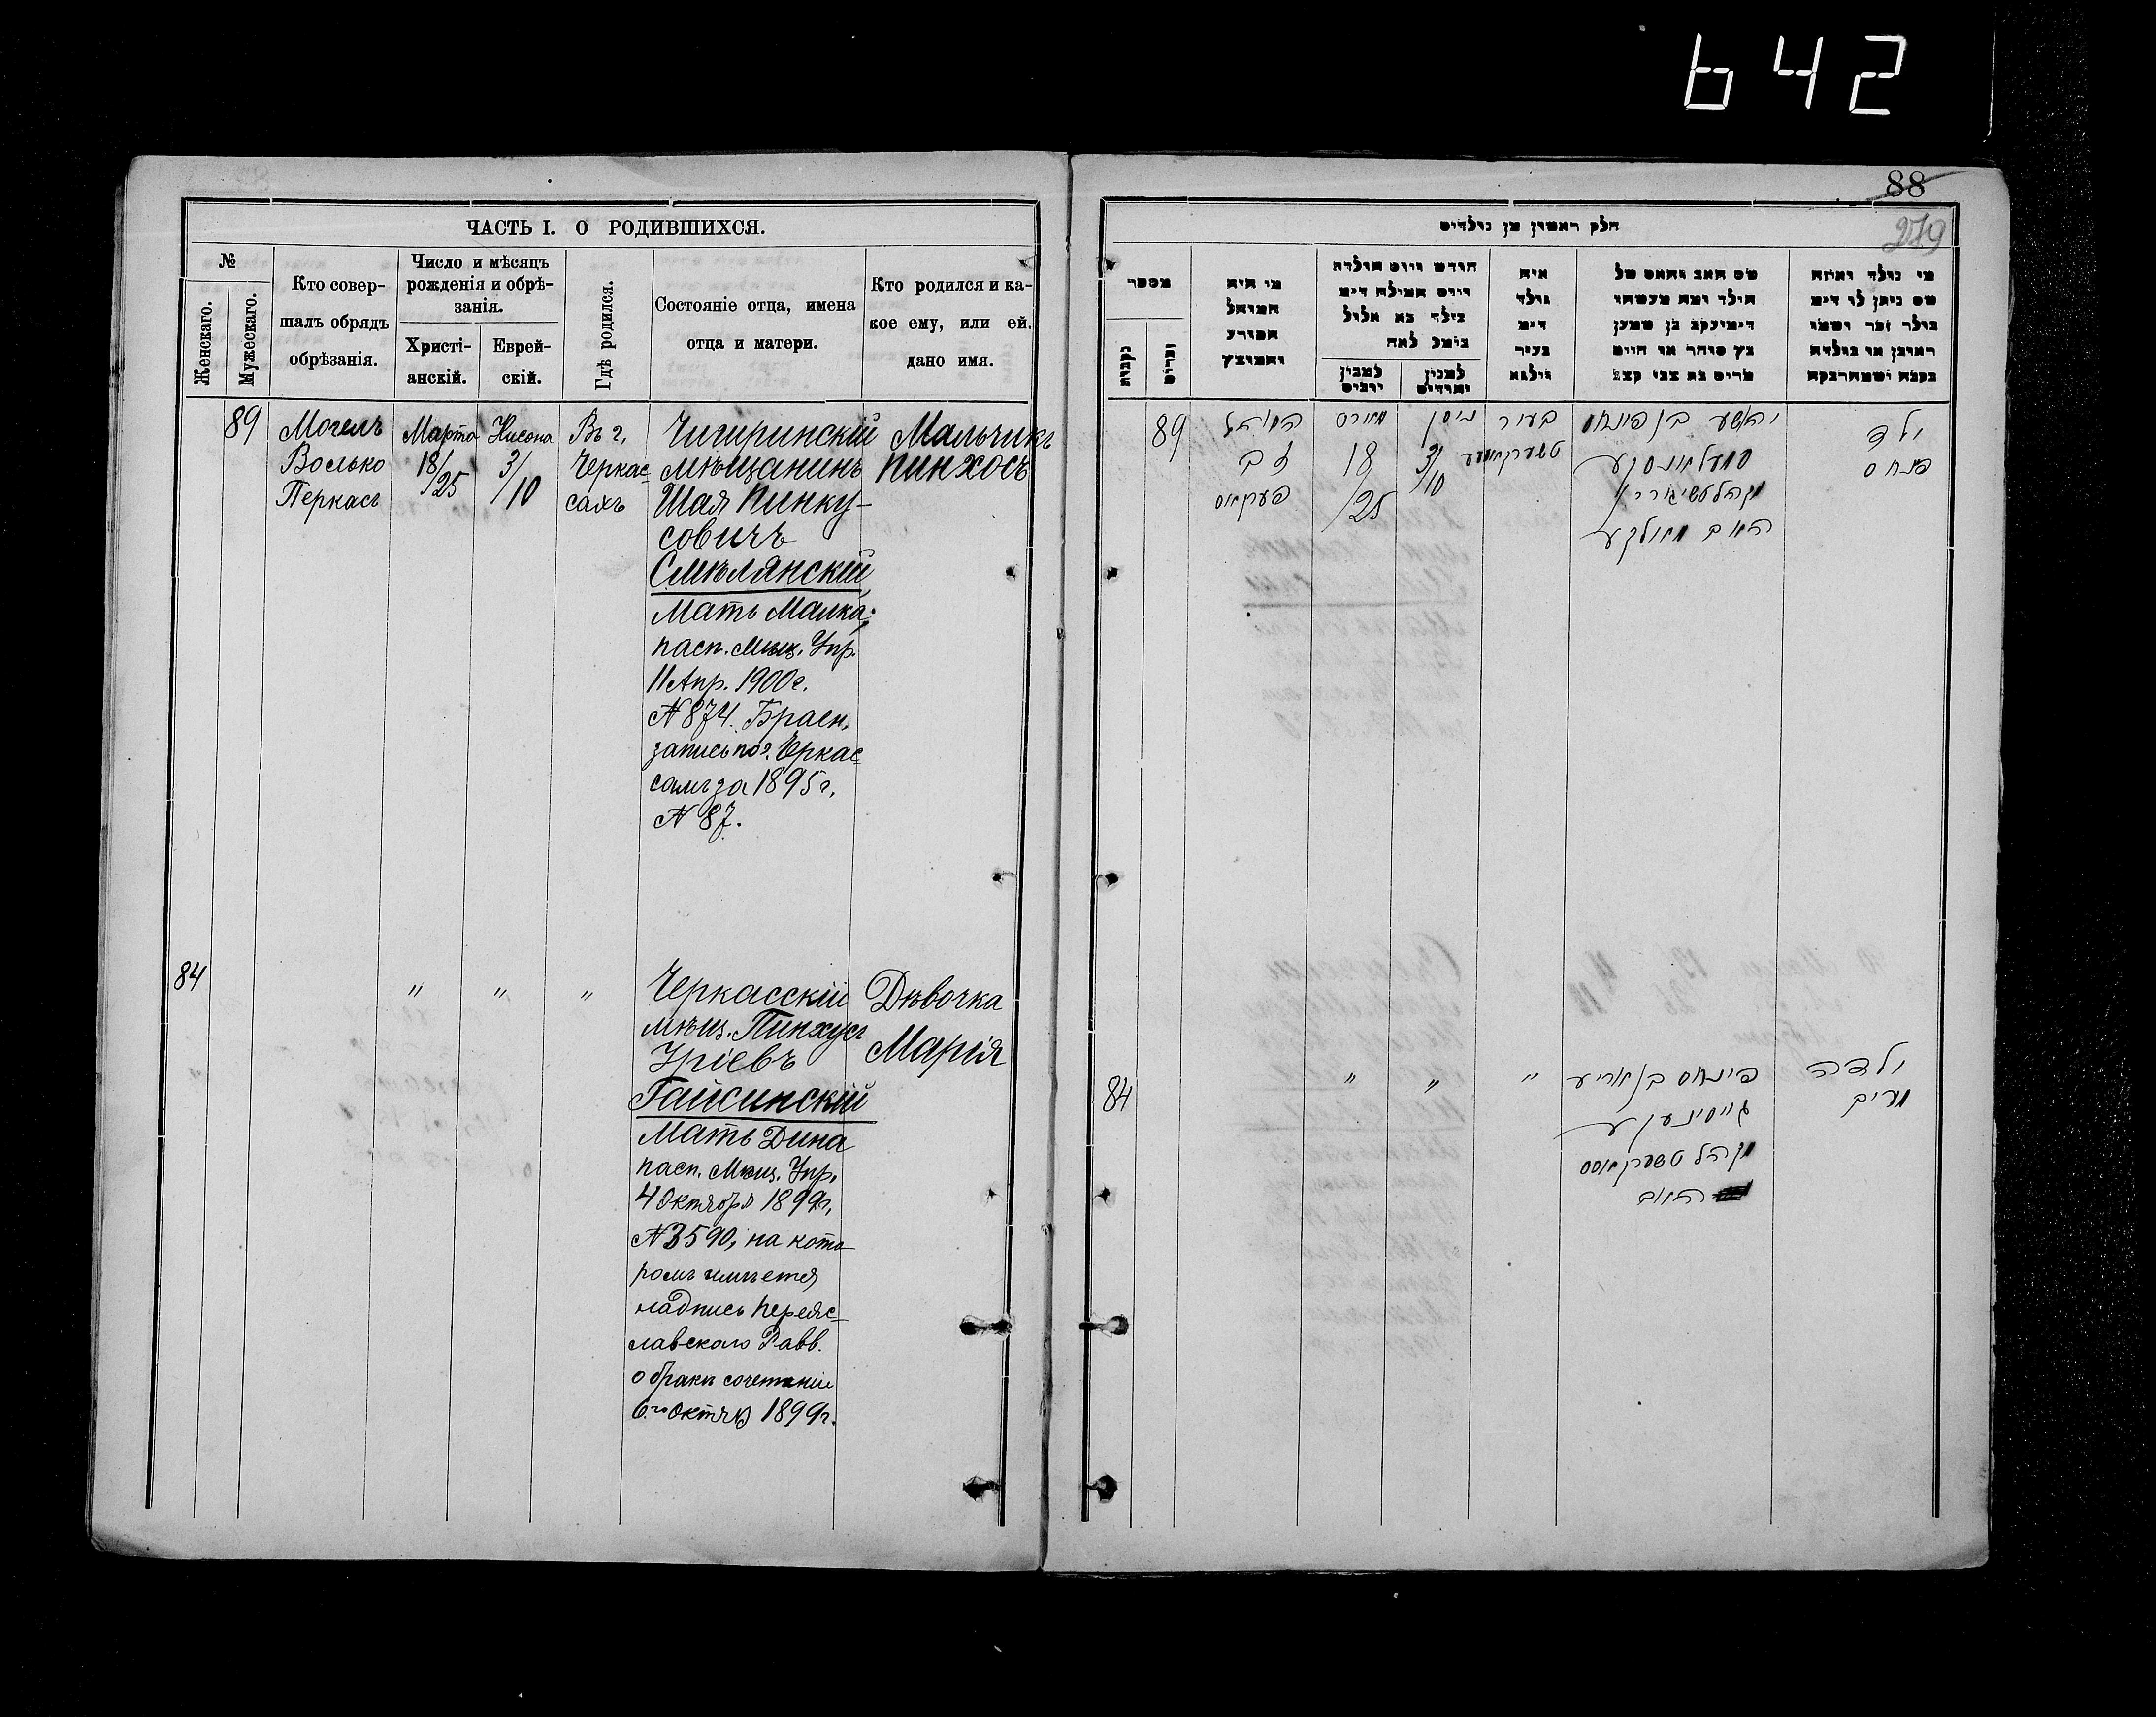 642
ЧАСТЬ I. О РОДИВШИХСЯ.
№
Женскаго.
Мужескаго.
Кто совер-
шалъ обрядъ
обрѣзанія.
Число и мѣсяцъ
рожденія и обрѣ-
занія.
Христі-
анскій.
Еврей-
скій.
Гдѣ родился.
Состояніе отца, имена
отца и матери.
Кто родился и ка-
кое ему, или ей.
дано имя.
89
Могелъ
Волько
Перкасъ
Марта
18/25
Нисона
3/10
Въ г.
Черкас-
сахъ
Чигиринскій
мѣщанинъ
Шая Пинку-
совичъ
Смѣлянскій
Мать Малка;
пасп. Мѣщ. Упр.
11 Апр. 1900г.
№ 874. Брачн.
запись по г. Черкас-
самъ за 1895г.
№ 87.
Мальчикъ
Пинхосъ
84
"
"
"
Черкасскій
мѣщ. Пинхусъ
Уріевъ
Гайсинскій
Мать Дина
пасп. Мѣщ. Упр.
4 Октября 1899г.
№ 3590, на кото-
ромъ имѣется
надпись Переяс-
лавскаго Равв.
о бракосочетаніи
6го Октяб 1899г.
Дѣвочка
Марія
88
279
חלק ראשון מן נולדים
מספר
נקבות
זכרים
מי היה
המוהל
חודש ויום הולדה
ויום המילה
למנין
איה
נולד
בעיר
ווילנא
שם האב והאם של
מי נולד ואיזה
שם ניתן לו
89
המוהל
זב
פערקאס
מארט
18
/25
ניסן
3/10
בעיר
יהושע בן פינחס
סמעליאנסקע
האם מאלקע
ילד
פנחס
84
"
"
"
פינחס בן אוריע
גייסינסקע
מקהל טשערקאסס
האם
ילדה
מרים